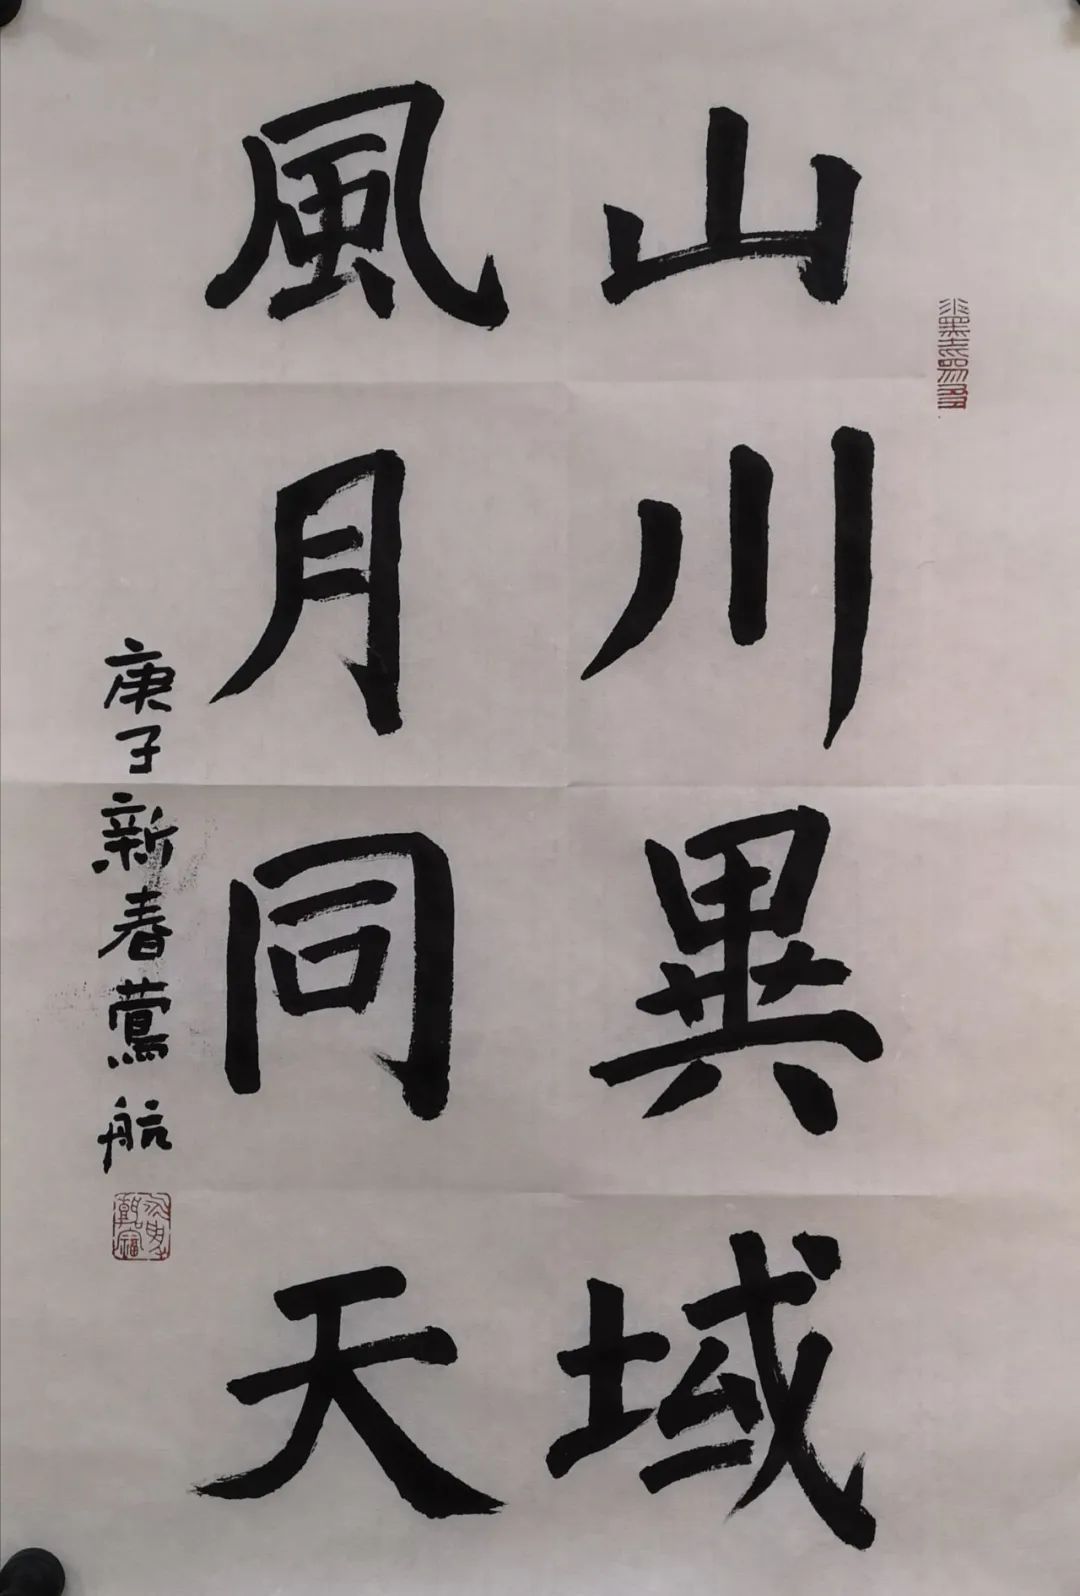 山川異域
風月同天
庚子新春鶯航